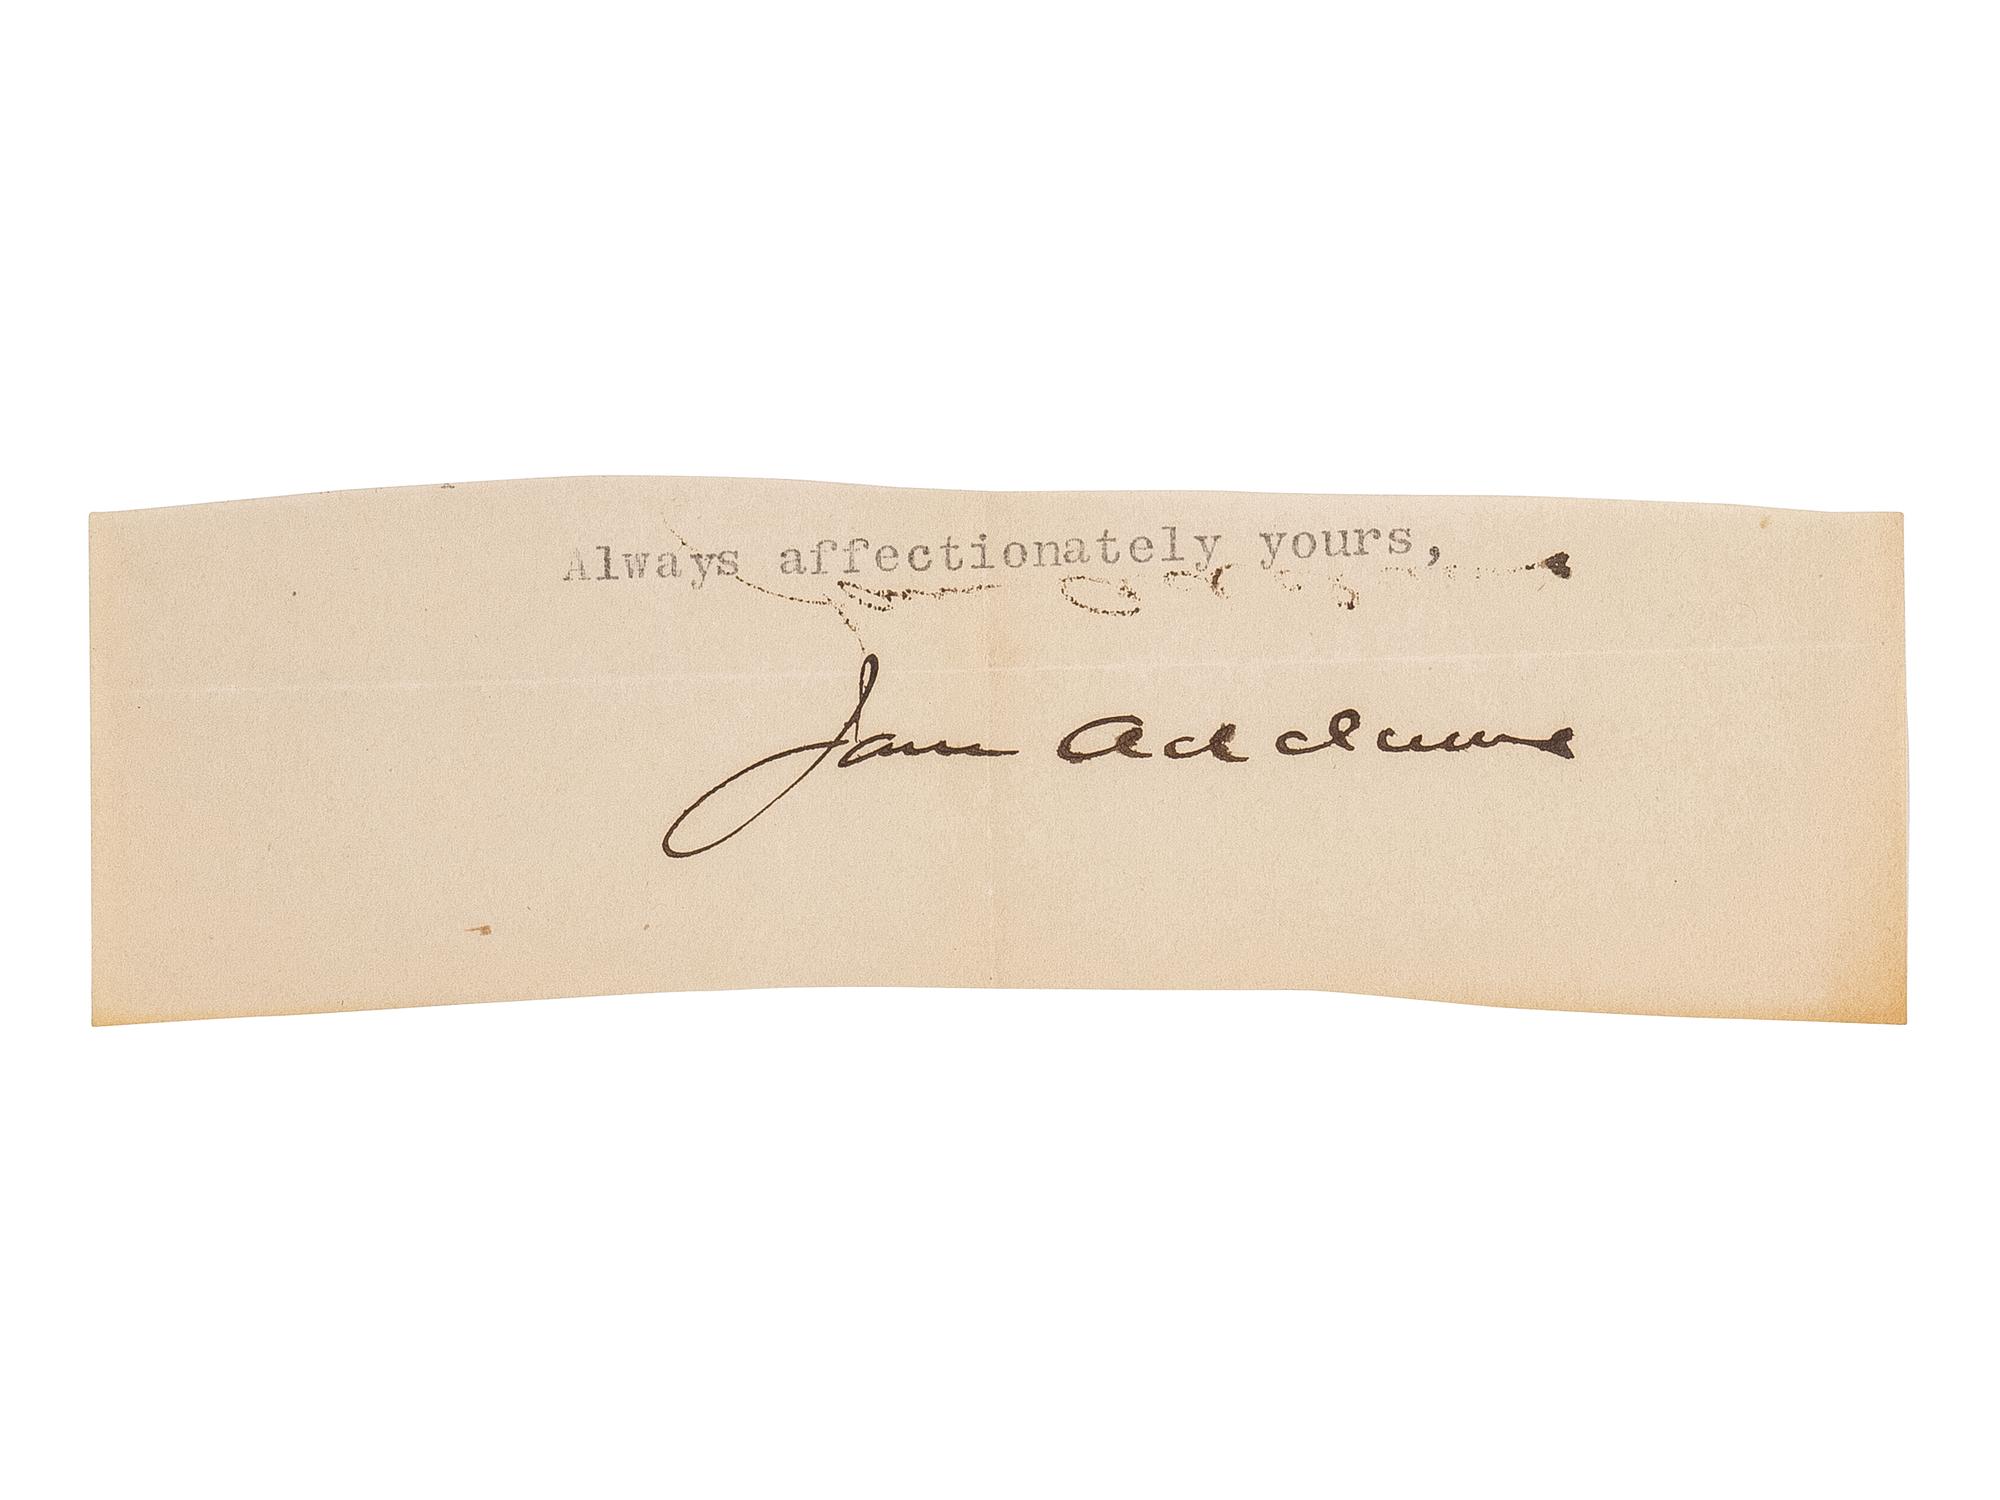 Always affectionately yours,
Jane Addams